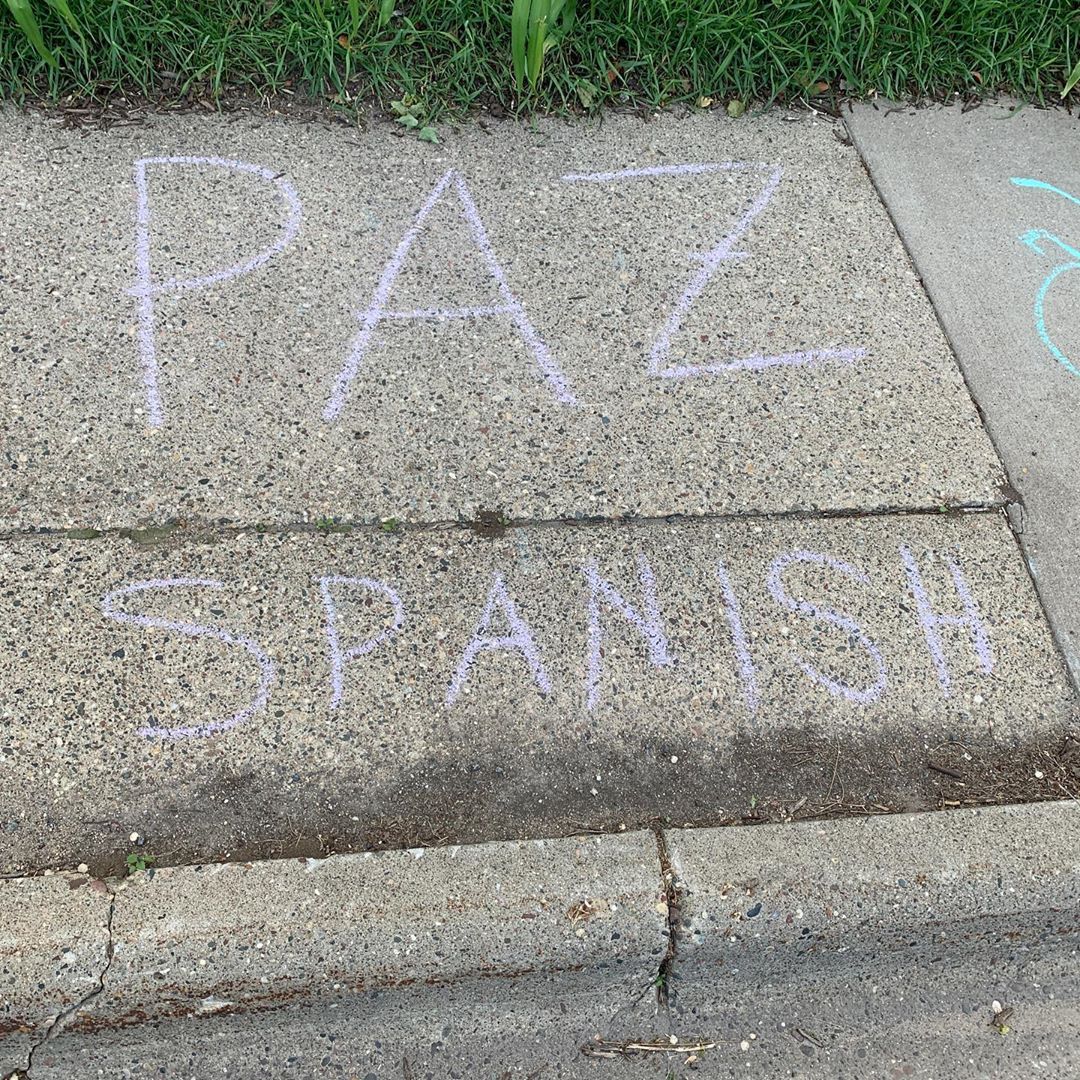 PAZ
SPANISH